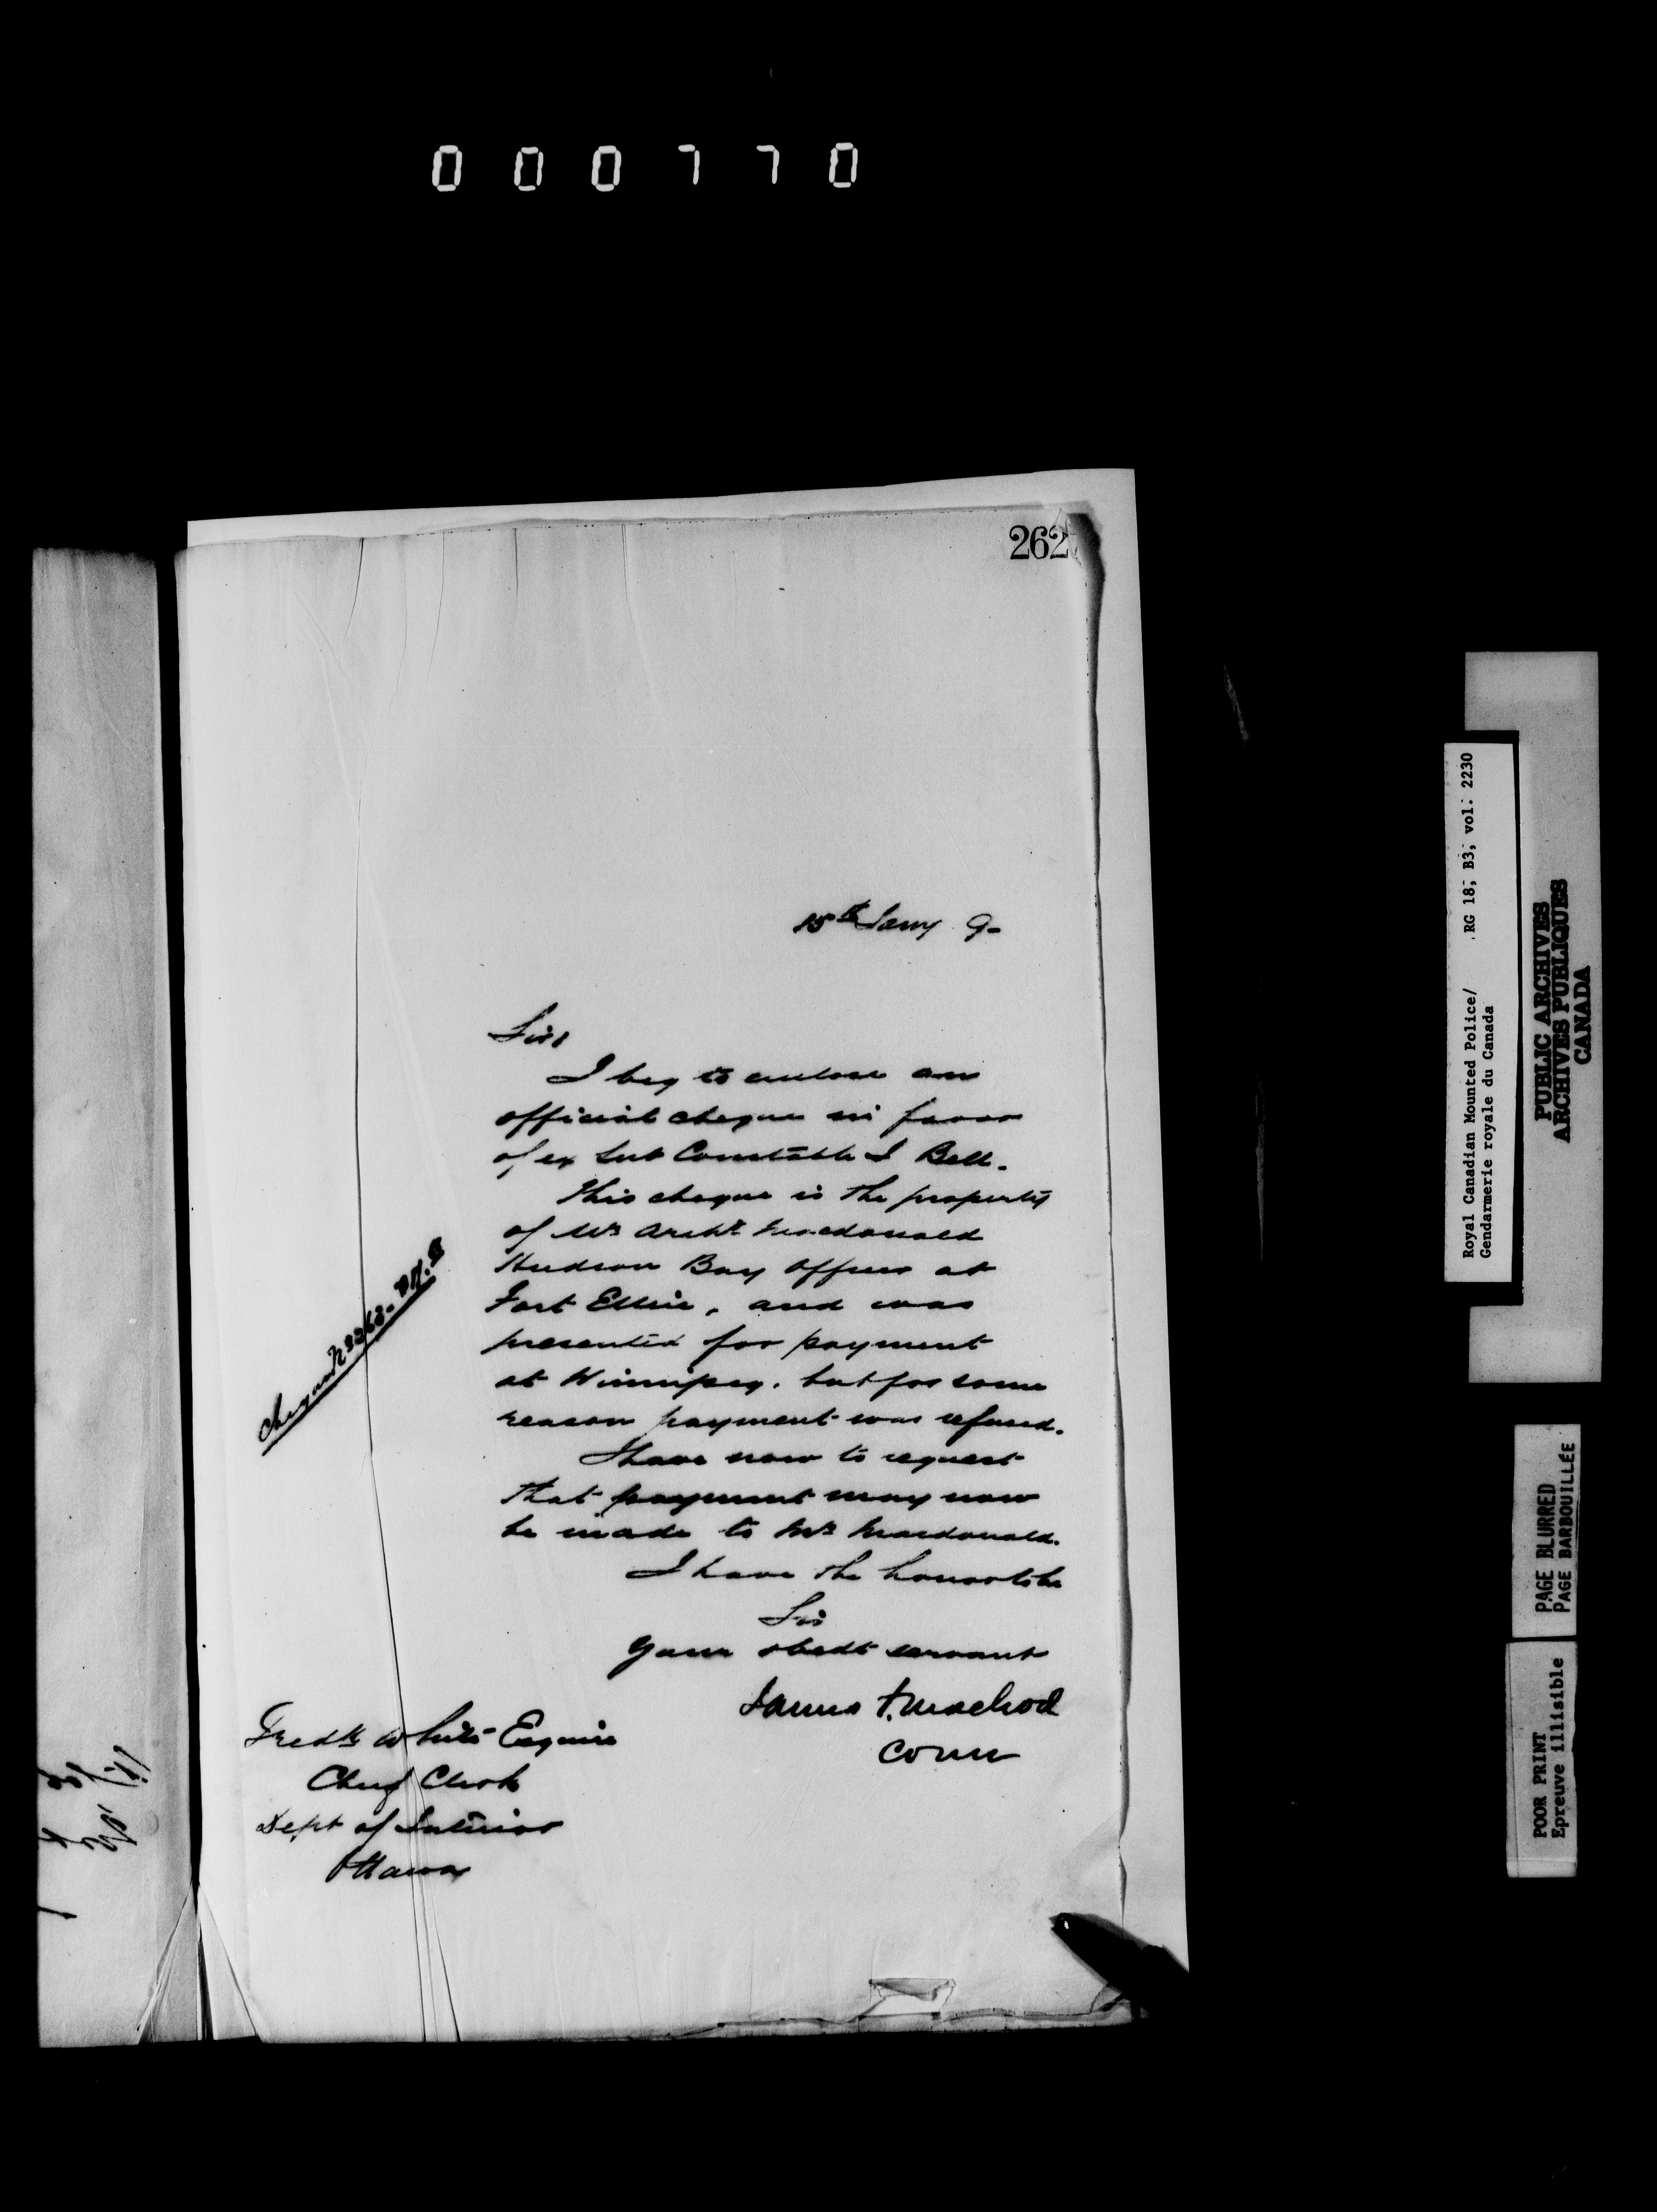 000770
262
15th Jany 9-
Sir,
I beg to enclose an
official cheque in favor
of ex Sub Constable J Bell.
This cheque is the property
of Mr Archd Macdonald
Hudson Bay Officer at
Fort Ellice, and was
presented for payment
at Winnipeg. but for some
reason payment was refused.
I have now to request
that payment may now
be made to Mr Macdonald.
I have the honor to be
Sir
Your obedt servant
James F. Macleod
Comr
Cheque
Fredk White Esquire
Chief Clerk
Dept of Interior
Ottawa
Royal Canadian Mounted Police/ RG 18, B3, vol. 2230
Gendarmerie royale du Canada
PUBLIC ARCHIVES
ARCHIVES PUBLIQUES
CANADA
PAGE BLURRED
PAGE BARBOUILLÉE
POOR PRINT
Epreuve illisible